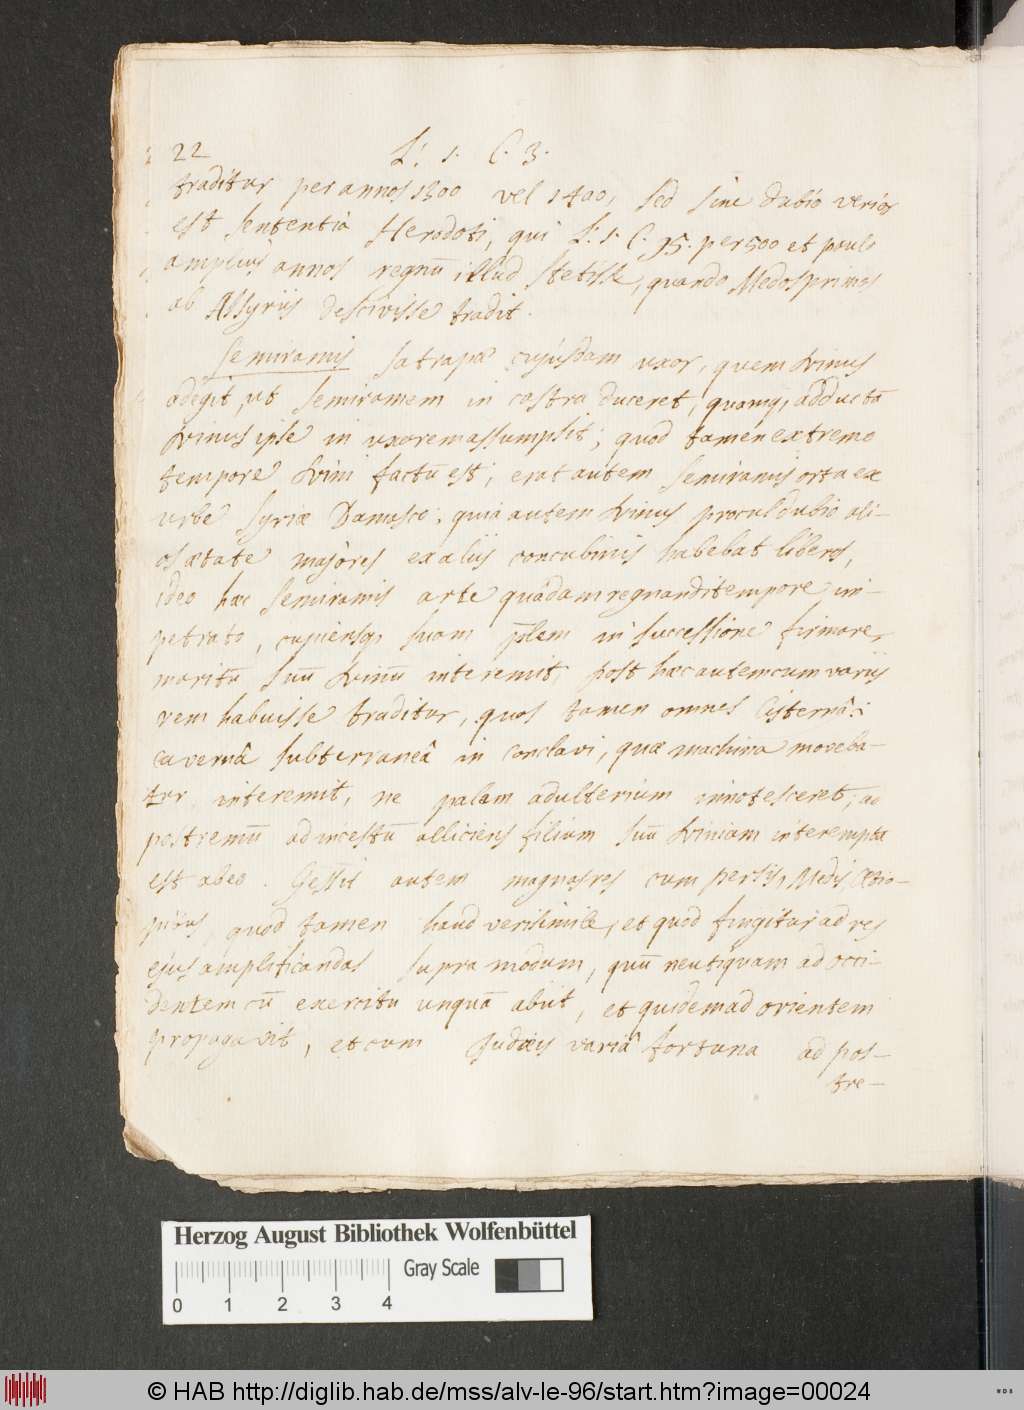 22 L. 1. C. 3.
traditur per annos 1300 vel 1400, sed sine dubio verior
est sententia Herodoti, qui L. 1. C. 95. per 500 et paulo
amplius annos regnū illud stetisse, quando Medos primos
ab Assyriis descivisse tradit.
Semiramis satrapæ cujusdam uxor, quem Ninus
adegit, ut Semiramem in castra duceret, quamq, adductā
Ninus ipse in uxorem assumpsit; quod tamen extremo
tempore Nini factū est; erat autem Semiramis orta ex
urbe Syriæ Damasco, quia autem Ninus procul dubio ali-
os ætate majores ex aliis concubinis habebat liberos,
ideo hæc Semiramis arte quâdam regnandi tempore im-
petrato, cupiensq, suam plem in successione firmare,
maritū suū Ninū interemit, post hæc autem cum variis
rem habuisse traditur, quos tamen omnes Cisternâ :i
cavernâ subterraneâ in conclavi, quæ machina moveba-
tur interemit, ne palam adulterium innotesceret, ac
postremū ad incestū alliciens filium suū Niniam interempta
est adeo. Gessit autem magnas res cum Persis, Medis, Æthio-
pibus, quod tamen haud verisimile, et quod fingitur ad res
ejus amplificandas supra modum, quū neutiquam ad occi-
dentem cū exercitu unquā abiit, et quidem ad orientem
propagavit, et cum Judæis variâ fortuna ad pos-
tre-
Herzog August Bibliothek Wolfenbüttel
Gray Scale
0 1 2 3 4
© HAB http://diglib.hab.de/mss/alv-le-96/start.htm?image=00024